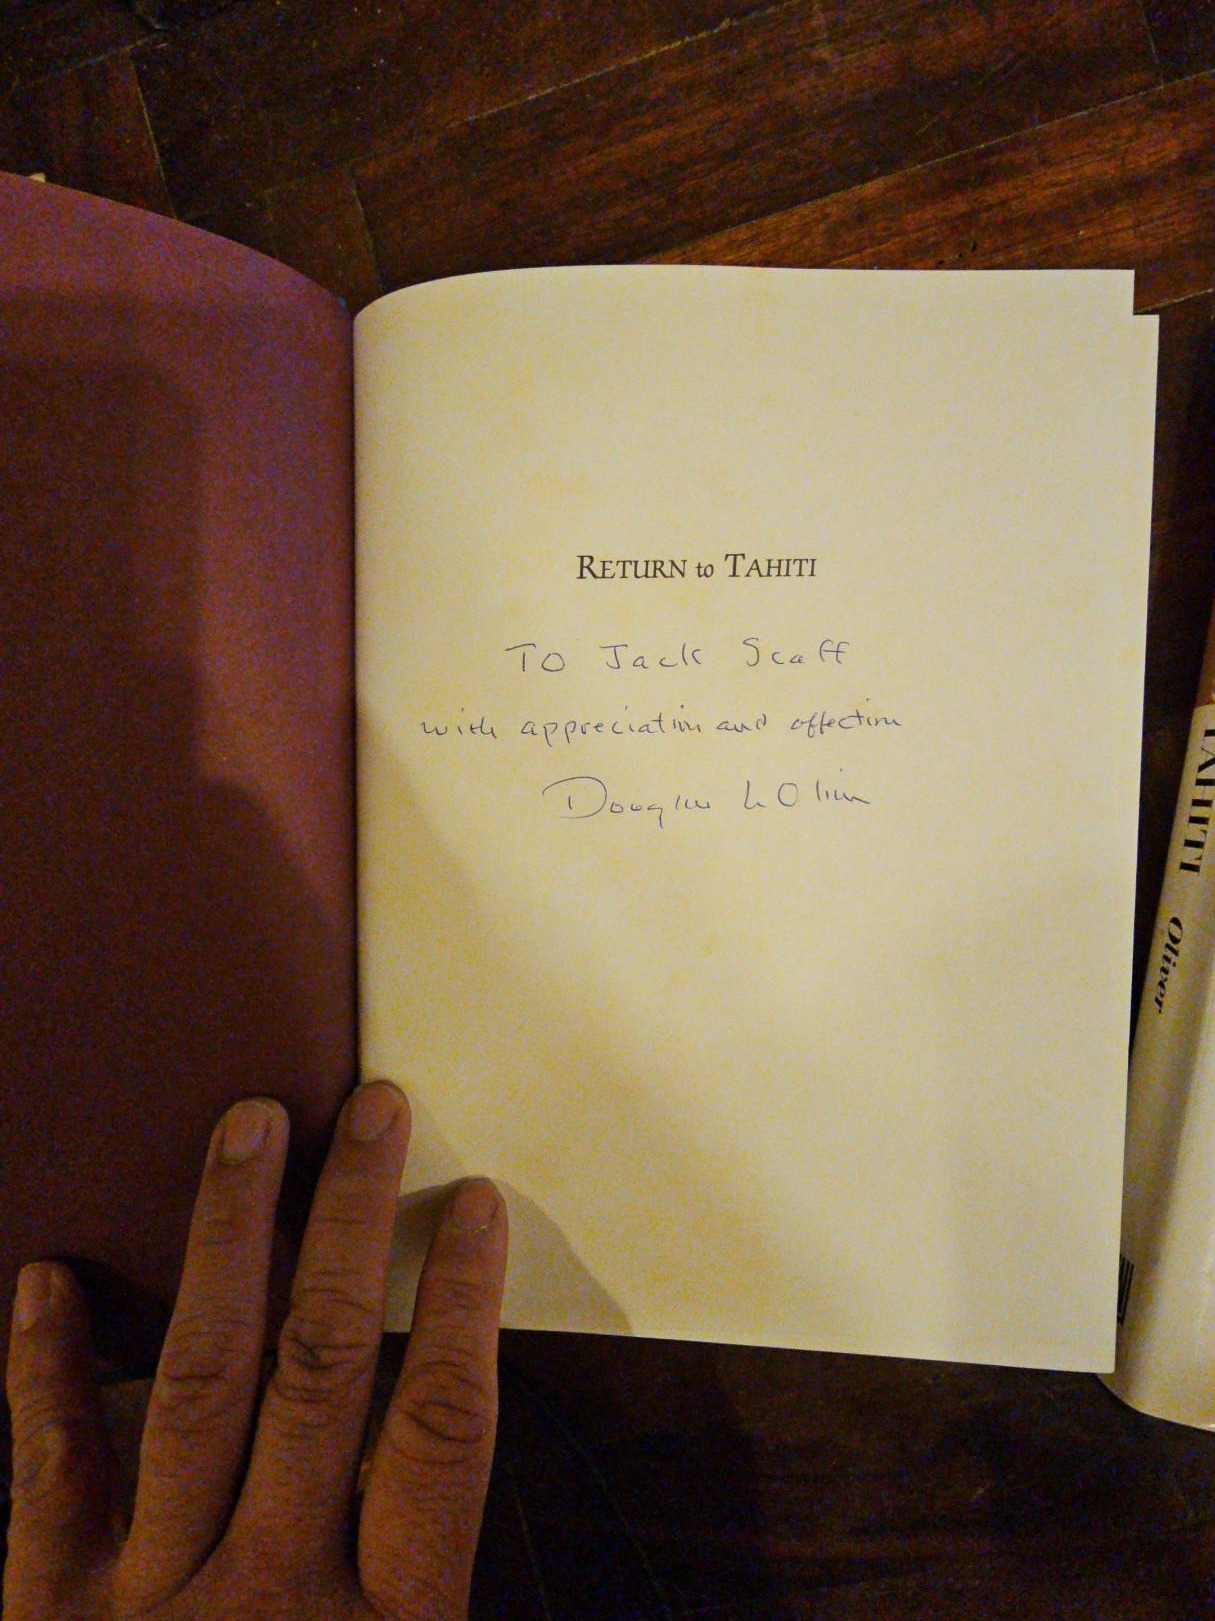 RETURN to TAHITI
To Jack Scaff
with appreciation and affection
Douglas L Oliver
TAHITI Oliver